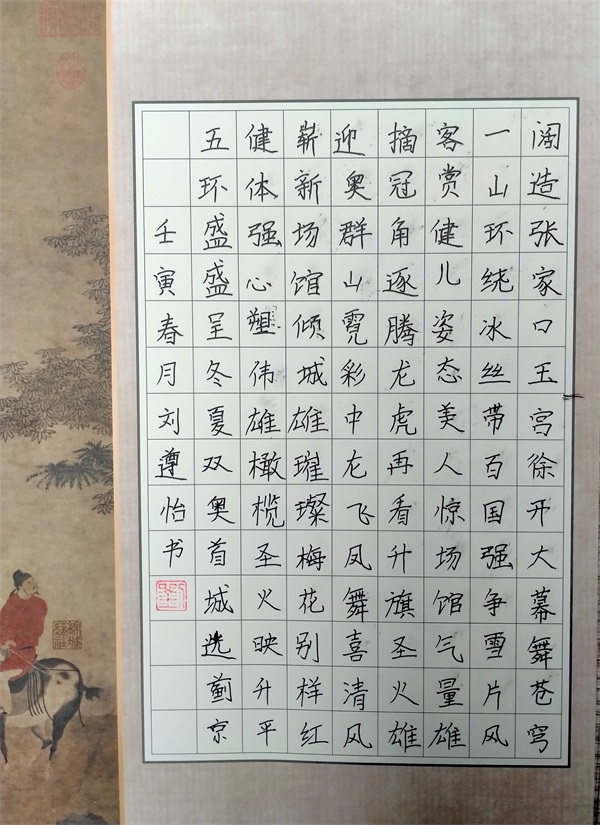 阔造张家口玉宫徐开大幕舞苍穹
一山环绕冰丝带百国强争雪片风
客赏健儿姿态美人惊场馆气量雄
摘冠角逐腾龙虎再看升旗圣火雄
迎奥群山霓彩中龙飞凤舞喜清风
崭新场馆倾城雄璀璨梅花别样红
健体强心塑伟雄橄榄圣火映升平
五环盛盛呈冬夏双奥首城选蓟京
壬寅春月刘遵怡书